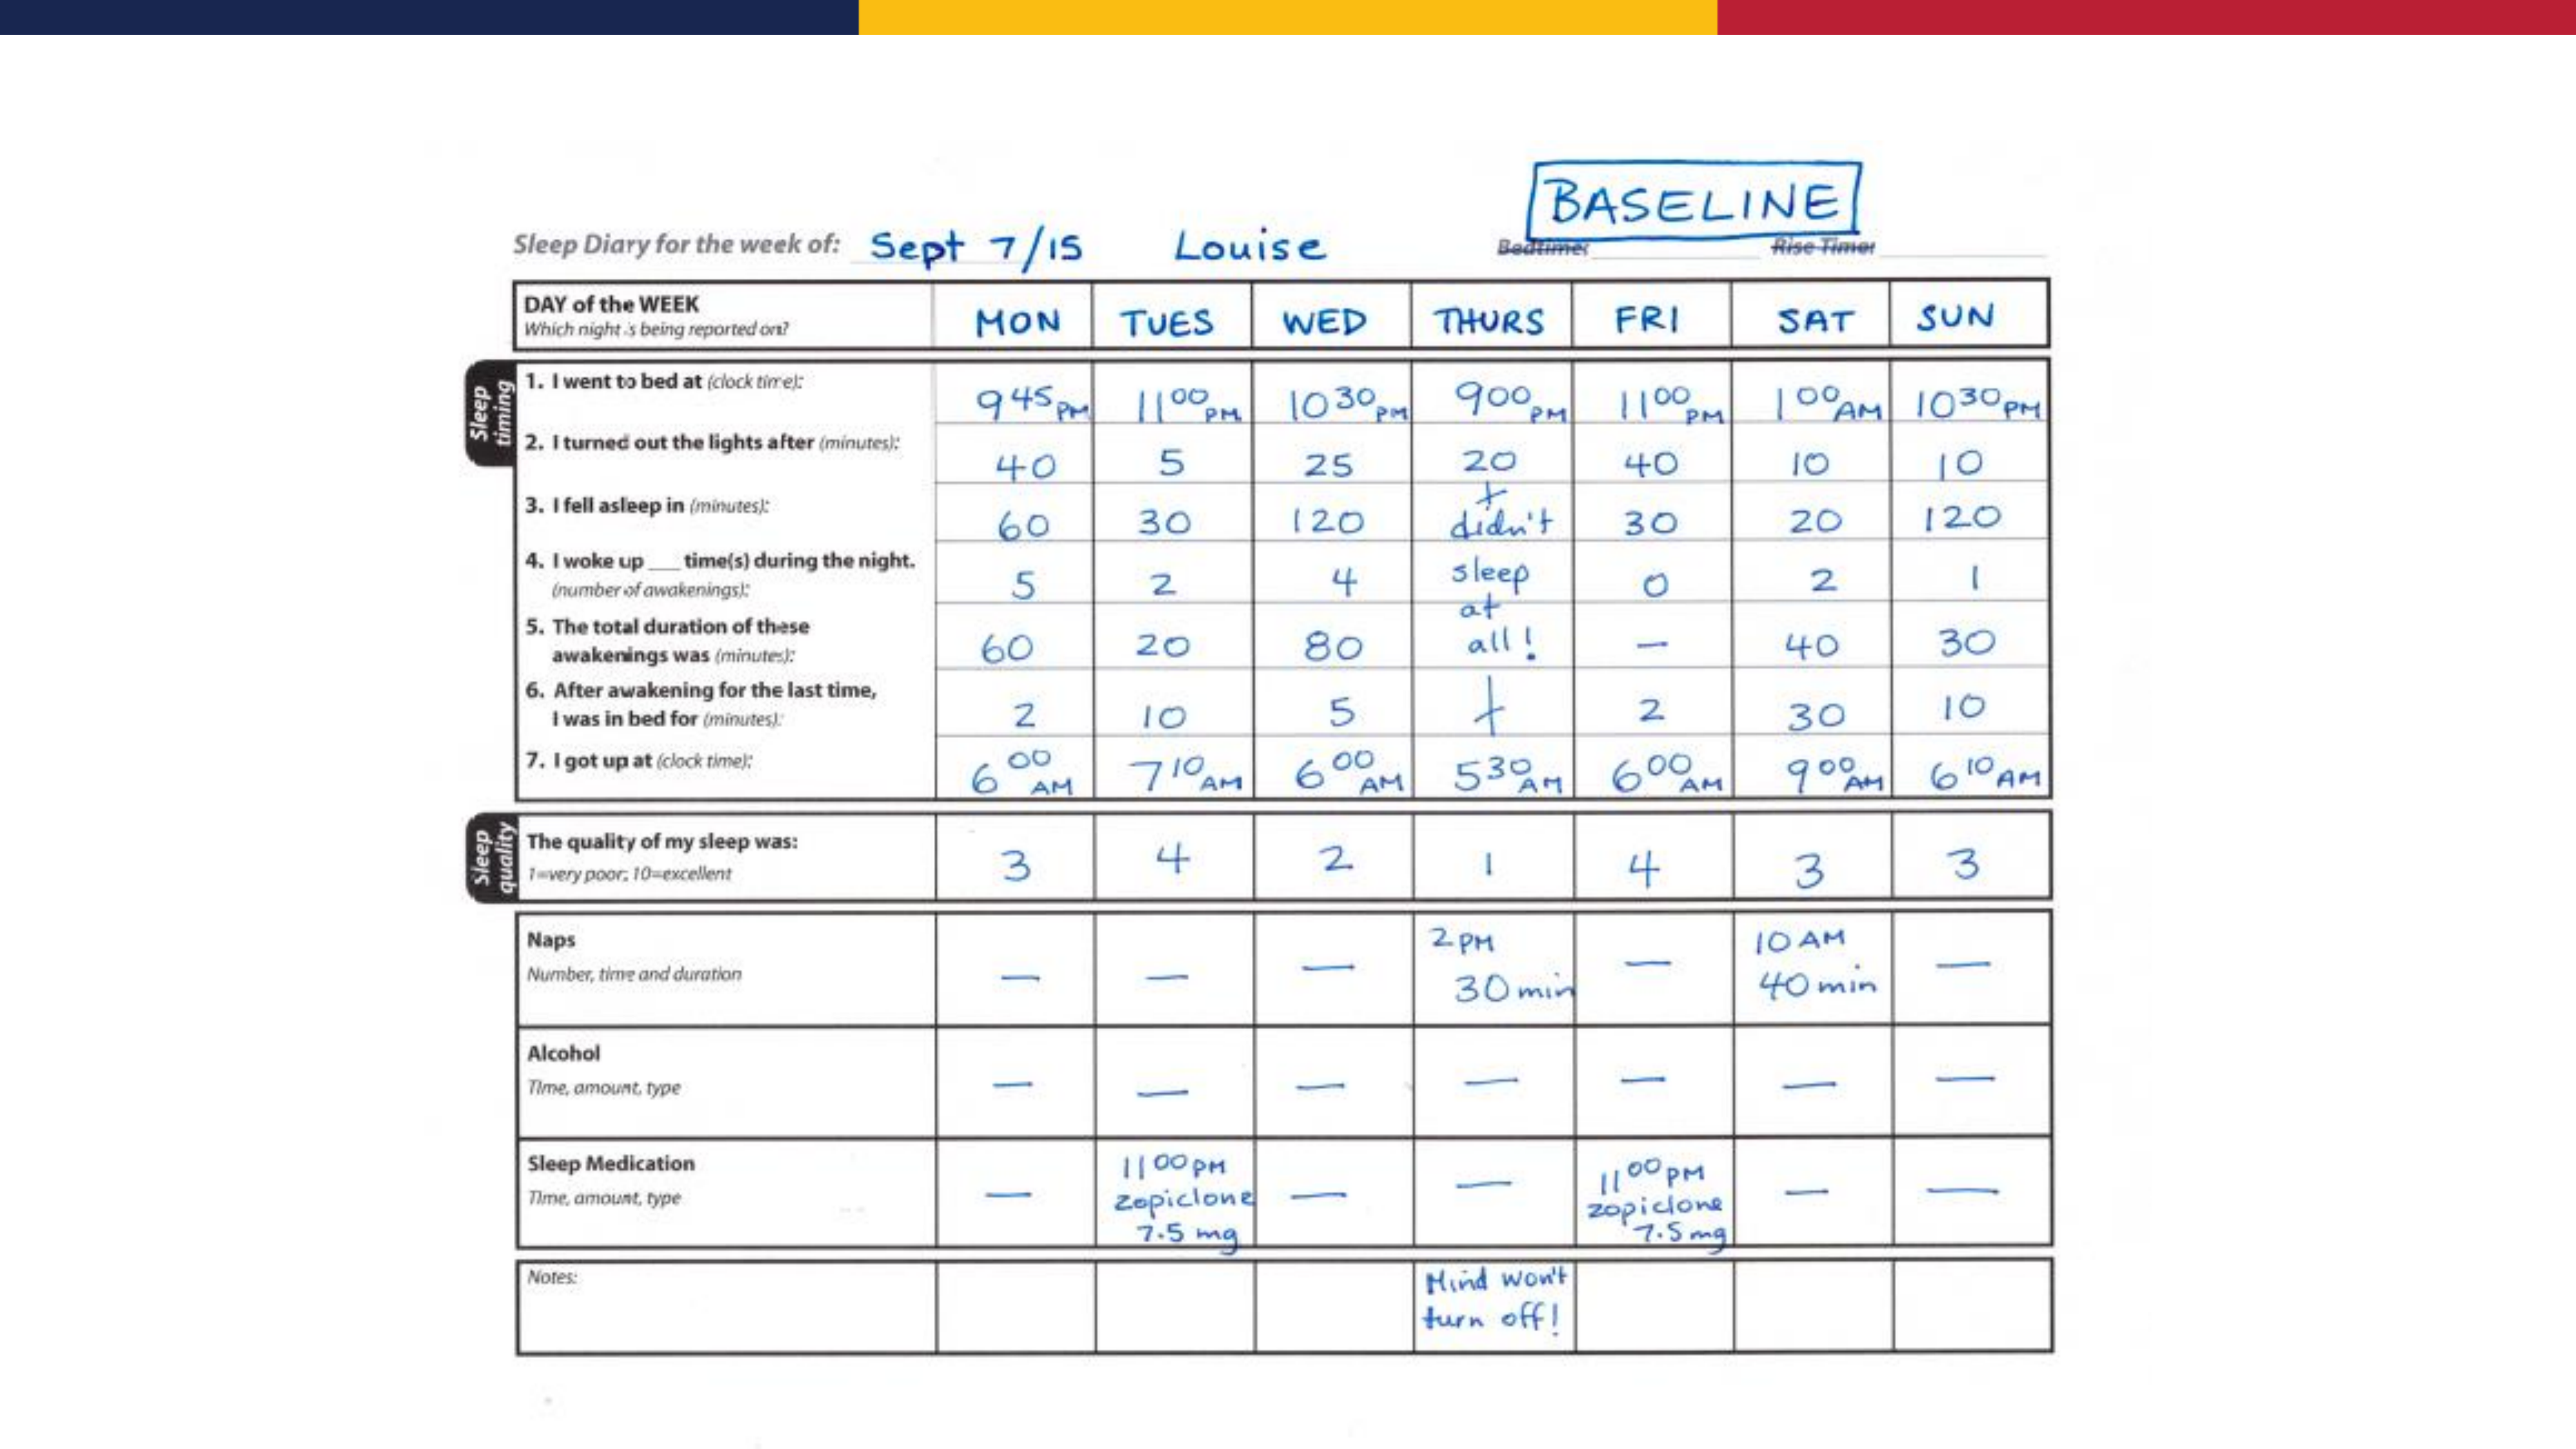 BASELINE
Sleep Diary for the week of: Sept 7/15 Louise Bedtime: Rise Time:
DAY of the WEEK MON TUES WED THURS FRI SAT SUN
Which night is being reported on?
Sleep timing
1. I went to bed at (clock time): 9 45 PM 11 00 PM 10 30 PM 9 00 PM 11 00 PM 1 00 AM 10 30 PM
2. I turned out the lights after (minutes): 40 5 25 20 40 10 10
3. I fell asleep in (minutes): 60 30 120 didn't 30 20 120
4. I woke up ___ time(s) during the night.
(number of awakenings): 5 2 4 sleep 0 2 1
at
5. The total duration of these
awakenings was (minutes): 60 20 80 all! — 40 30
6. After awakening for the last time,
I was in bed for (minutes): 2 10 5 2 30 10
7. I got up at (clock time): 6 00 AM 7 10 AM 6 00 AM 5 30 AM 6 00 AM 9 00 AM 6 10 AM
Sleep quality
The quality of my sleep was: 3 4 2 1 4 3 3
1=very poor; 10=excellent
Naps 2 PM 10 AM
Number, time and duration — — — 30 min — 40 min —
Alcohol
Time, amount, type — — — — — — —
Sleep Medication 11 00 PM 11 00 PM
Time, amount, type — zopiclone — — zopiclone — —
7.5 mg 7.5 mg
Notes: Mind won't
turn off!